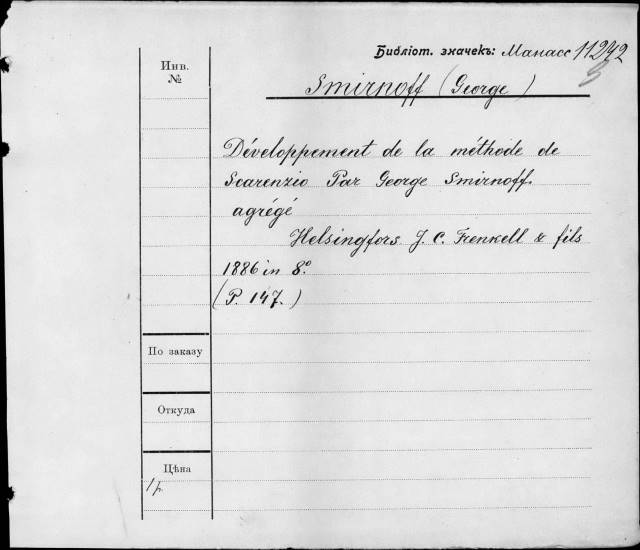 Библіот. значекъ: Манасс 11242
Инв.
№
Smirnoff (George)
Développement de la méthode de
Scarenzio Par George Smirnoff.
agrégé
Helsingfors J. C. Frenkell & fils
1886 in 8°
(P. 147.)
По заказу
Откуда
Цѣна
1 р.